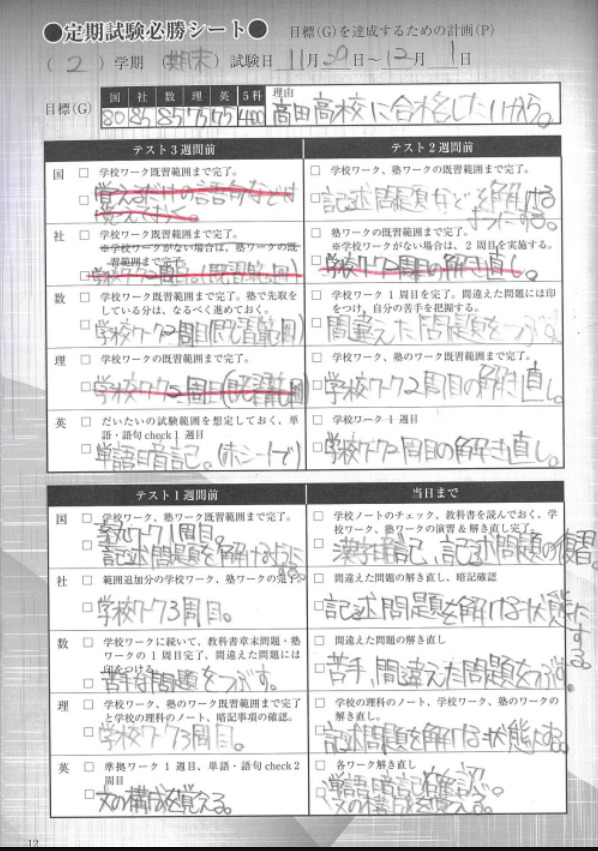 ●定期試験必勝シート●
目標(G)を達成するための計画(P)
( 2 ) 学期 (期末) 試験日 11月29日～12月 1日
目標(G)
国 社 数 理 英 5科 理由
80 85 85 75 75 400 高田高校に合格したいから。
テスト3週間前
テスト2週間前
国 □ 学校ワーク既習範囲まで完了。
□ 覚えるだけの語句などは
覚えておく。
□ 学校ワーク、塾ワークの既習範囲まで完了。
□ 記述問題など
ようにする。
社 □ 学校ワーク既習範囲まで完了。
※学校ワークがない場合は、塾ワークの既
習範囲まで完了
□ 学校ワーク2周目。(既習範囲)
□ 塾ワークの既習範囲まで完了。
※学校ワークがない場合は、2 周目を実施する。
□ 学校ワーク2周目の解き直し。
数 □ 学校ワーク既習範囲まで完了。塾で先取を
している分は、なるべく進めておく。
□ 学校ワーク2周目(既習範囲)
□ 学校ワーク 1 周目を完了。間違えた問題には印
をつけ、自分の苦手を把握する。
□ 間違えた問題をつぶす。
理 □ 学校ワークの既習範囲まで完了。
□ 学校ワーク2周目(既習範囲)
□ 学校ワーク、塾のワーク既習範囲まで完了。
□ 学校ワーク2周目の解き直し。
英 □ だいたいの試験範囲を想定しておく、単
語・語句 check 1 週目
□ 単語暗記。(赤シートで)
□ 学校ワーク 1 週目
□ 学校ワーク2周目の解き直し。
テスト1週間前
当日まで
国 □ 学校ワーク、塾ワーク既習範囲まで完了。
学校ワーク1周目。
□ 記述問題を解けるように
する。
□ 学校ノートのチェック、教科書を読んでおく、学
校ワーク、塾ワークの演習&解き直し完了。
□ 漢字暗記、記述問題の復習。
社 □ 範囲追加分の学校ワーク、塾ワークの完了。
□ 学校ワーク3周目。
□ 間違えた問題の解き直し、暗記確認
□ 記述問題を解ける状態に
する。
数 □ 学校ワークに続いて、教科書章末問題・塾
ワークの 1 周目完了、間違えた問題には
印をつける。
□ 苦手な問題をつぶす。
□ 間違えた問題の解き直し
□ 苦手、間違えた問題をつぶす。
理 □ 学校ワーク、塾のワーク既習範囲まで完了
と学校の理科のノート、暗記事項の確認。
□ 学校ワーク3周目。
□ 学校の理科のノート、学校ワーク、塾のワークの
解き直し。
□ 記述問題を解ける状態にする。
英 □ 準拠ワーク 1 週目、単語・語句 check 2
周目
□ 文の構成を覚える。
□ 各ワーク解き直し
□ 単語暗記確認。
文の構成を覚える。
12